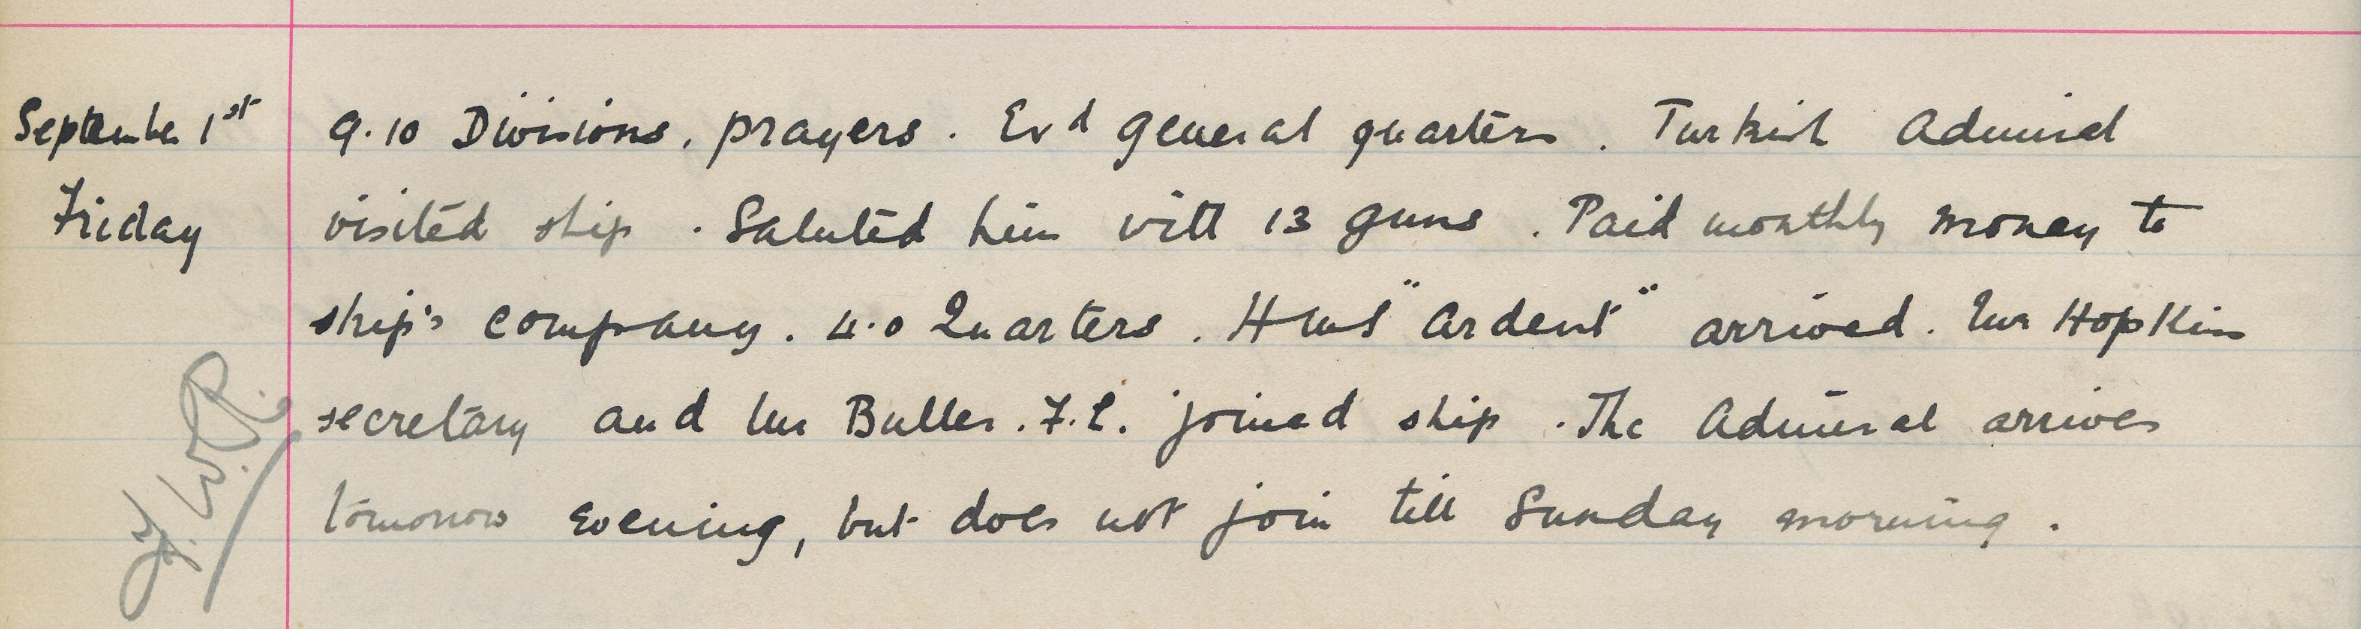 September 1st 9.10 Divisions, prayers. Exd general quarters. Turkish Admiral
Friday visited ship. Saluted him with 13 guns. Paid monthly money to
ship's company. 4.0 Quarters. HMS "Ardent" arrived. Mr Hopkins
secretary and Mr Buller. F.L. joined ship. The Admiral arrives
tomorrow evening, but does not join till Sunday morning.